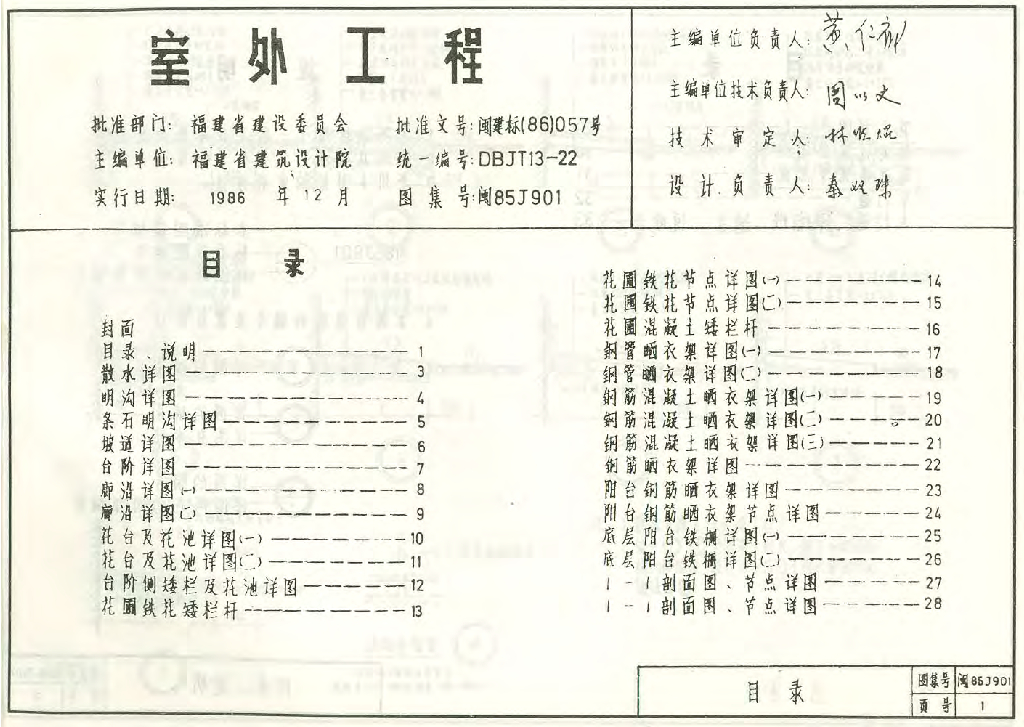 室外工程
批准部门: 福建省建设委员会 批准文号:闽建标(86)057号
主编单位: 福建省建筑设计院 统一编号:DBJT13-22
实行日期: 1986 年12月 图集号:闽85J901
主编单位负责人:
主编单位技术负责人:
技术审定人:
设计负责人:
目录
封面
目录、说明 1
散水详图 3
明沟详图 4
条石明沟详图 5
坡道详图 6
台阶详图 7
廊沿详图(一) 8
廊沿详图(二) 9
花台及花池详图(一) 10
花台及花池详图(二) 11
台阶侧矮栏及花池详图 12
花圃铁花矮栏杆 13
花圃铁花节点详图(一) 14
花圃铁花节点详图(二) 15
花圃混凝土矮栏杆 16
钢管晒衣架详图(一) 17
钢管晒衣架详图(二) 18
钢筋混凝土晒衣架详图(一) 19
钢筋混凝土晒衣架详图(二) 20
钢筋混凝土晒衣架详图(三) 21
钢筋晒衣架详图 22
阳台钢筋晒衣架详图 23
阳台钢筋晒衣架节点详图 24
底层阳台铁栅详图(一) 25
底层阳台铁栅详图(二) 26
1-1剖面图、节点详图 27
1-1剖面图、节点详图 28
目录
图集号 闽85J901
页号 1